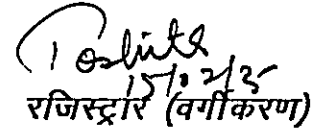 15/02/25
रजिस्ट्रार (वर्गीकरण)